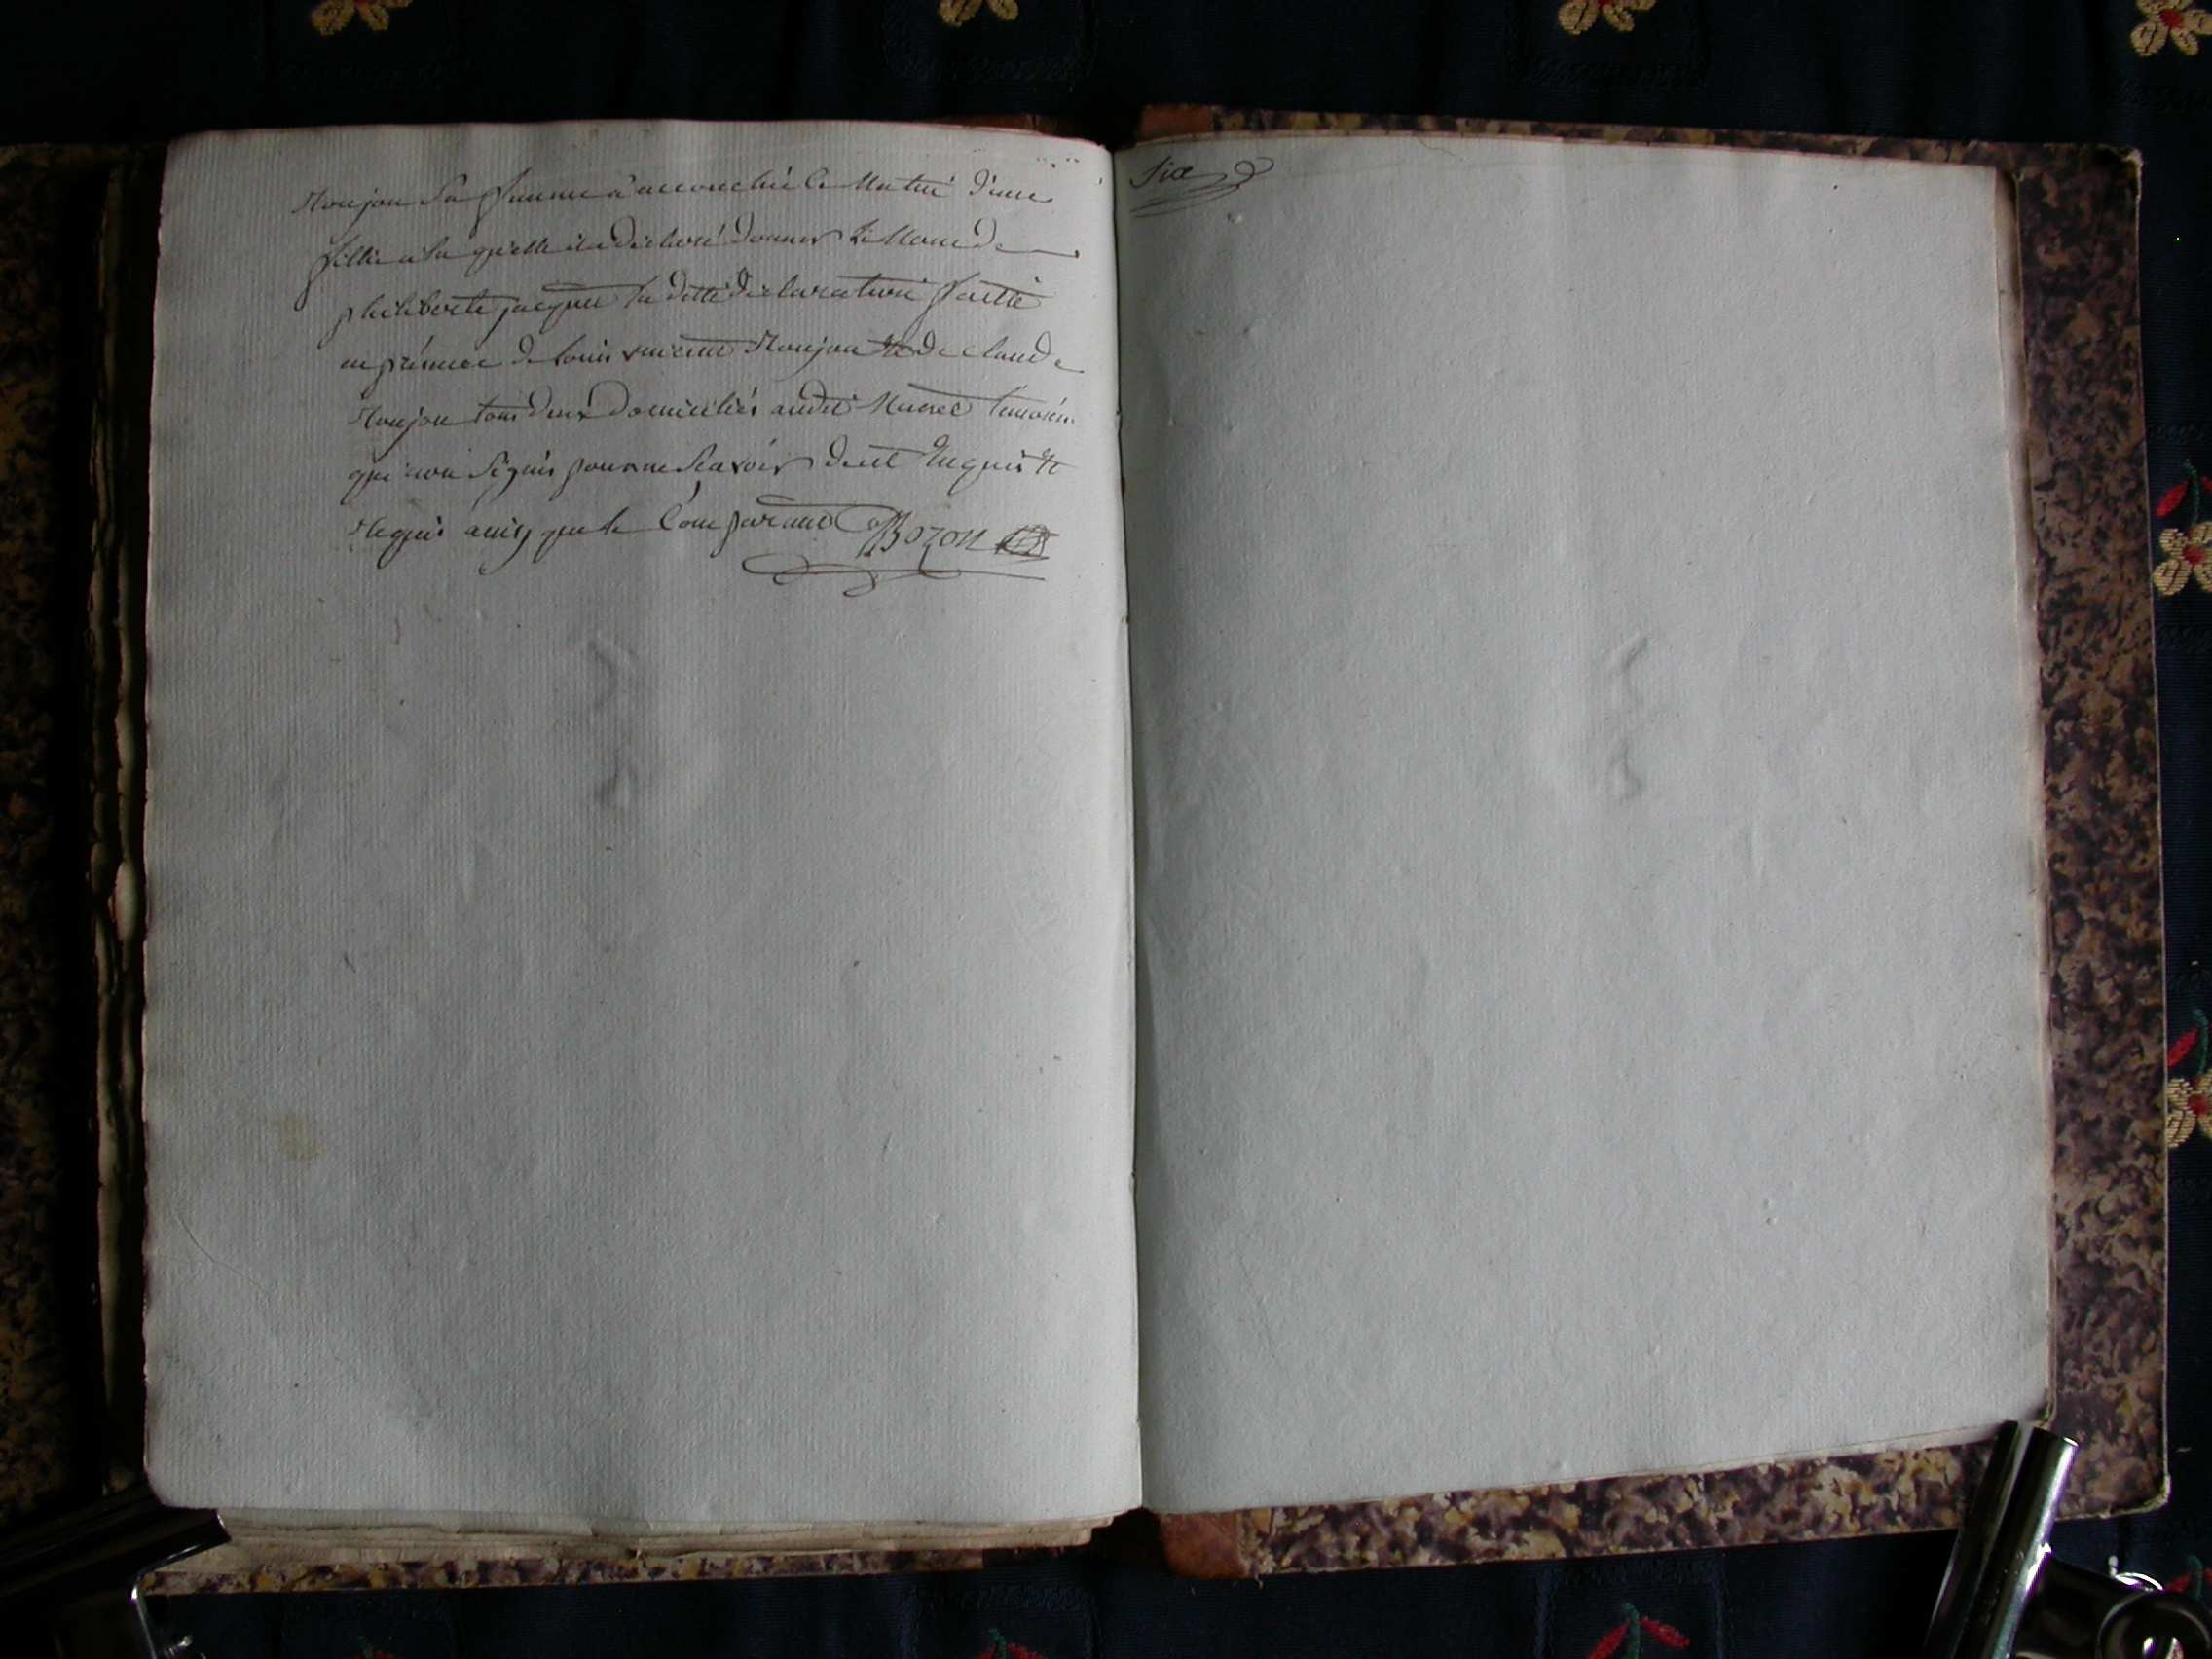 sa femme a accouchée ce Matin d'une
fillie a la quelle il a déclaré donner le Nom de
philiberte jacques la ditte déclaration faitte
en présence de Louis vincent Monjon et de claude
Monjon tous deux domiciliés audit
qui non signés pour ne Scavoir de ce Enquis et
Requis ainsy que le Comparant Bozon
six